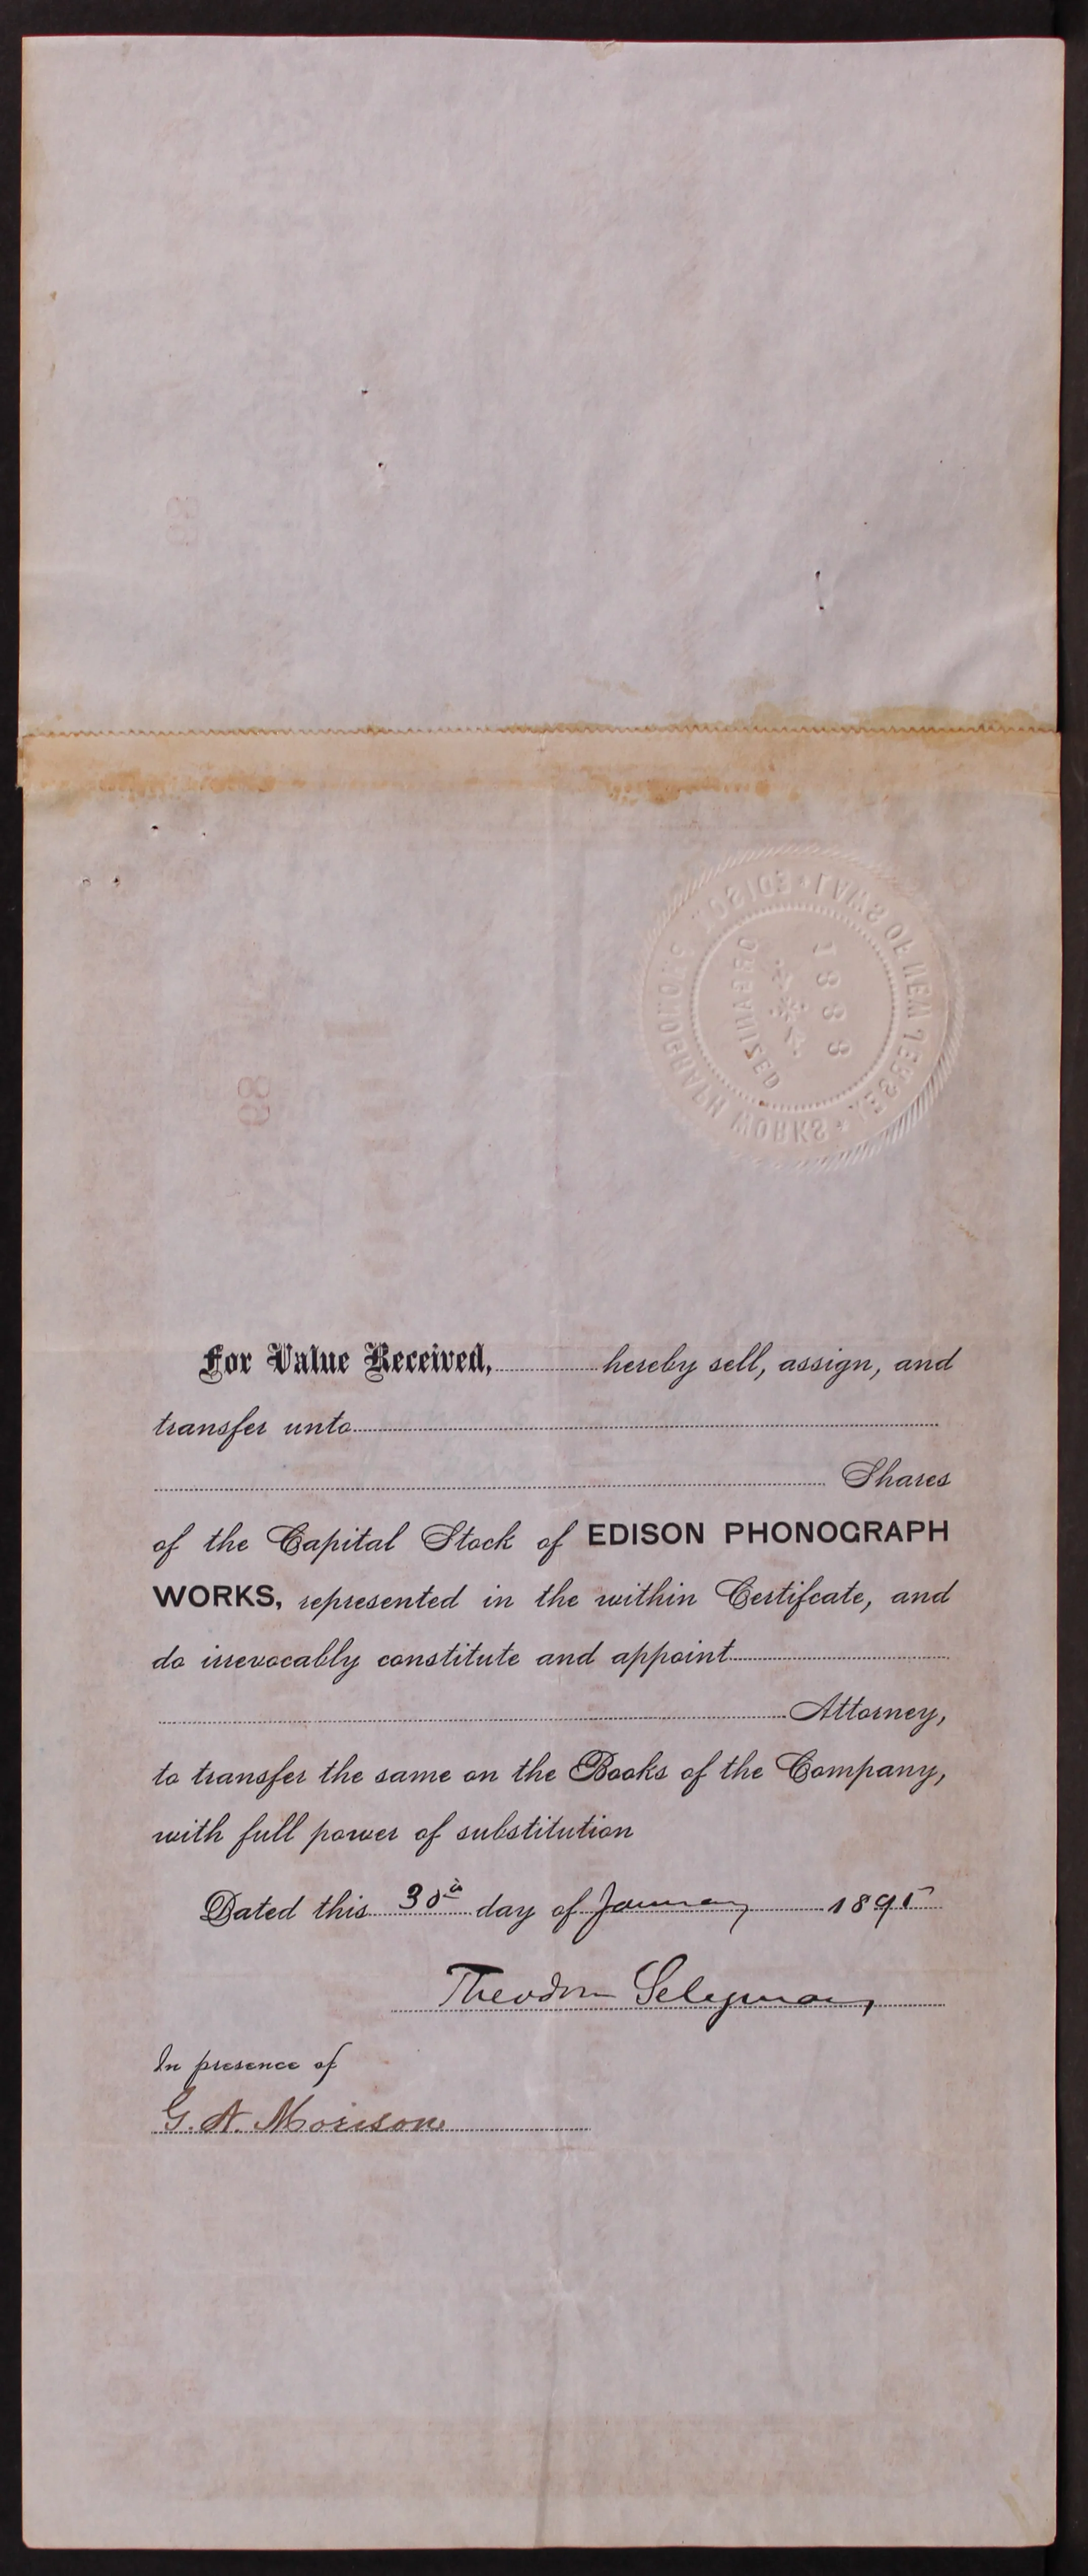 For Value Received, hereby sell, assign, and
transfer unto
Shares
of the Capital Stock of EDISON PHONOGRAPH
WORKS, represented in the within Certifcate, and
do irrevocably constitute and appoint
Attorney,
to transfer the same on the Books of the Company,
with full power of substitution
Dated this 30th day of January 1895
Theodore Seligman
In presence of
G. A. Morison
EDISON PHONOGRAPH WORKS * LAWS OF NEW JERSEY *
ORGANIZED
1888
89